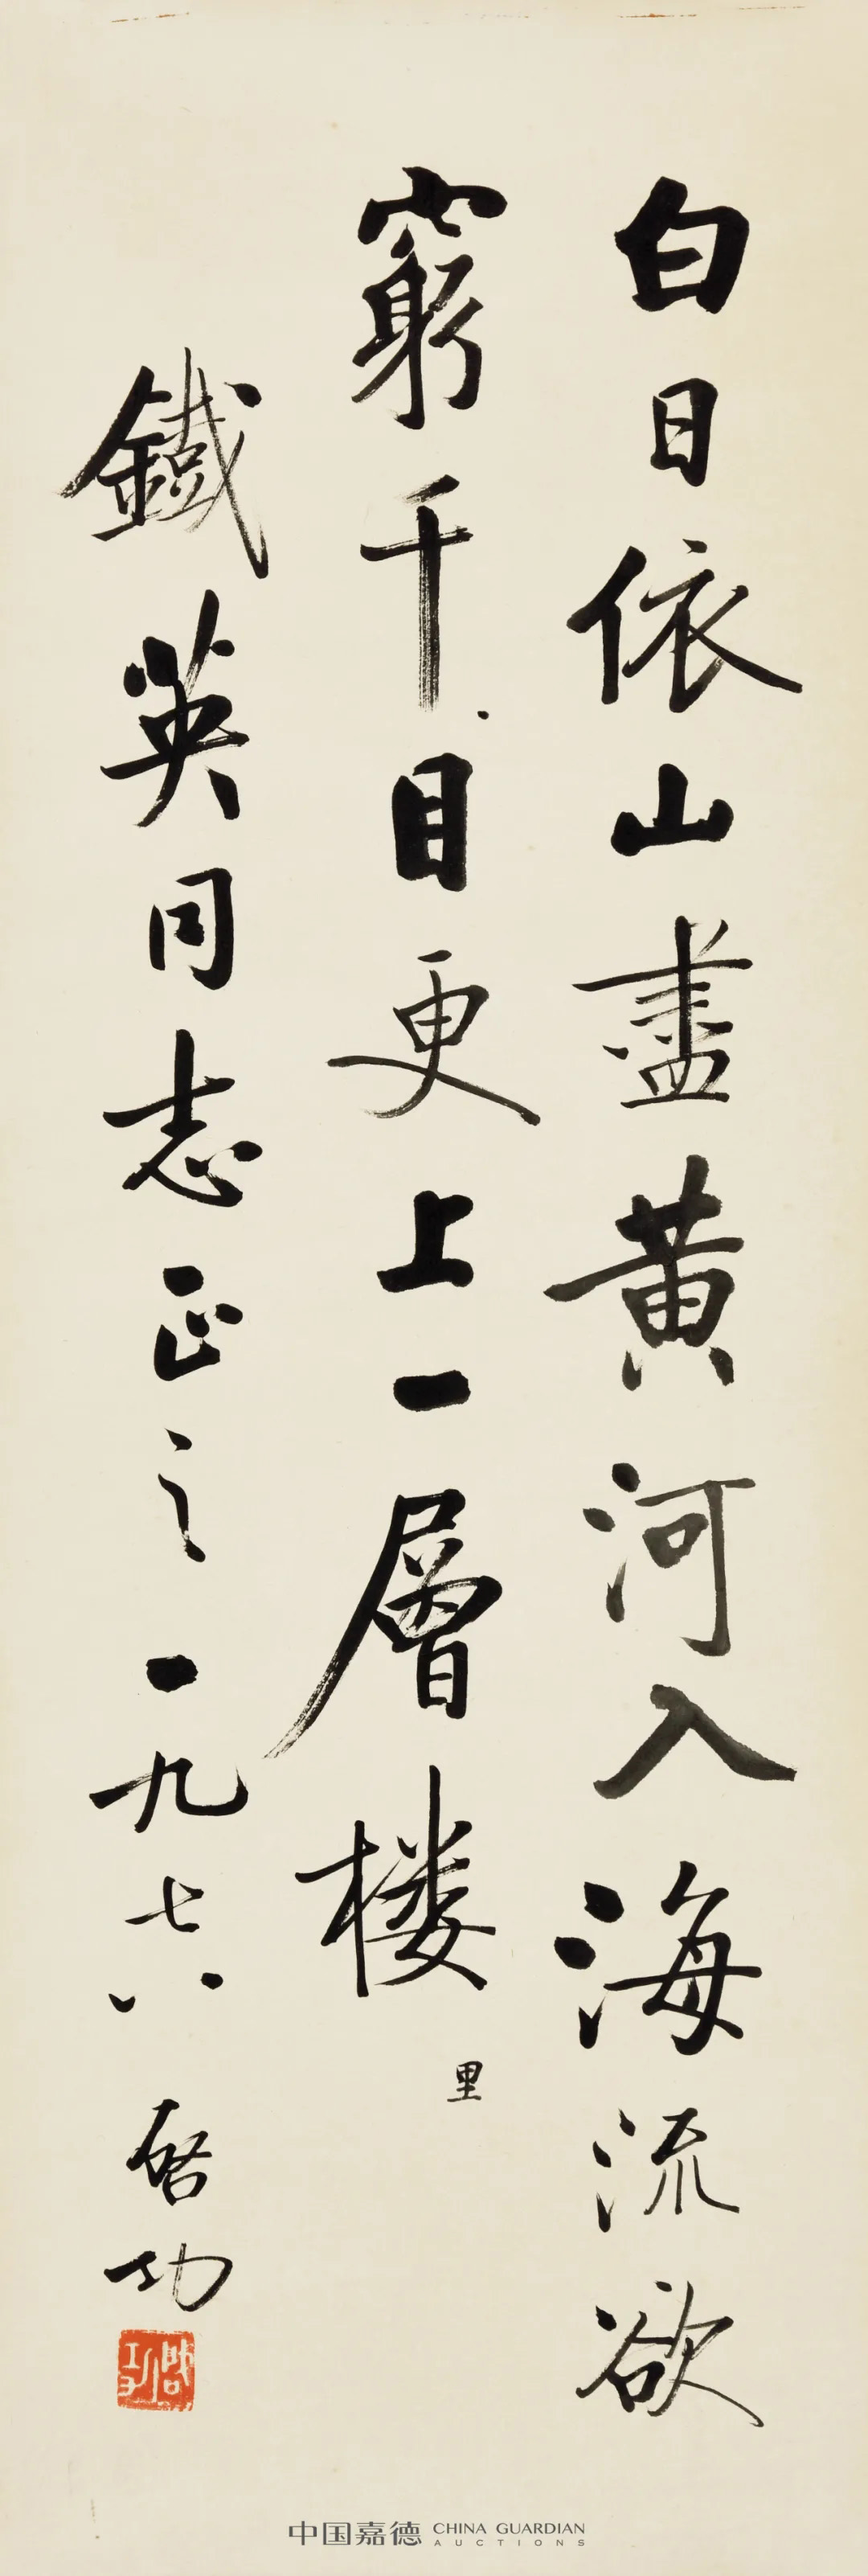 白日依山盡黄河入海流欲
窮千目更上一層楼
里
鐵英同志正之一九七八 启功
啟功
中国嘉德 CHINA GUARDIAN
AUCTIONS